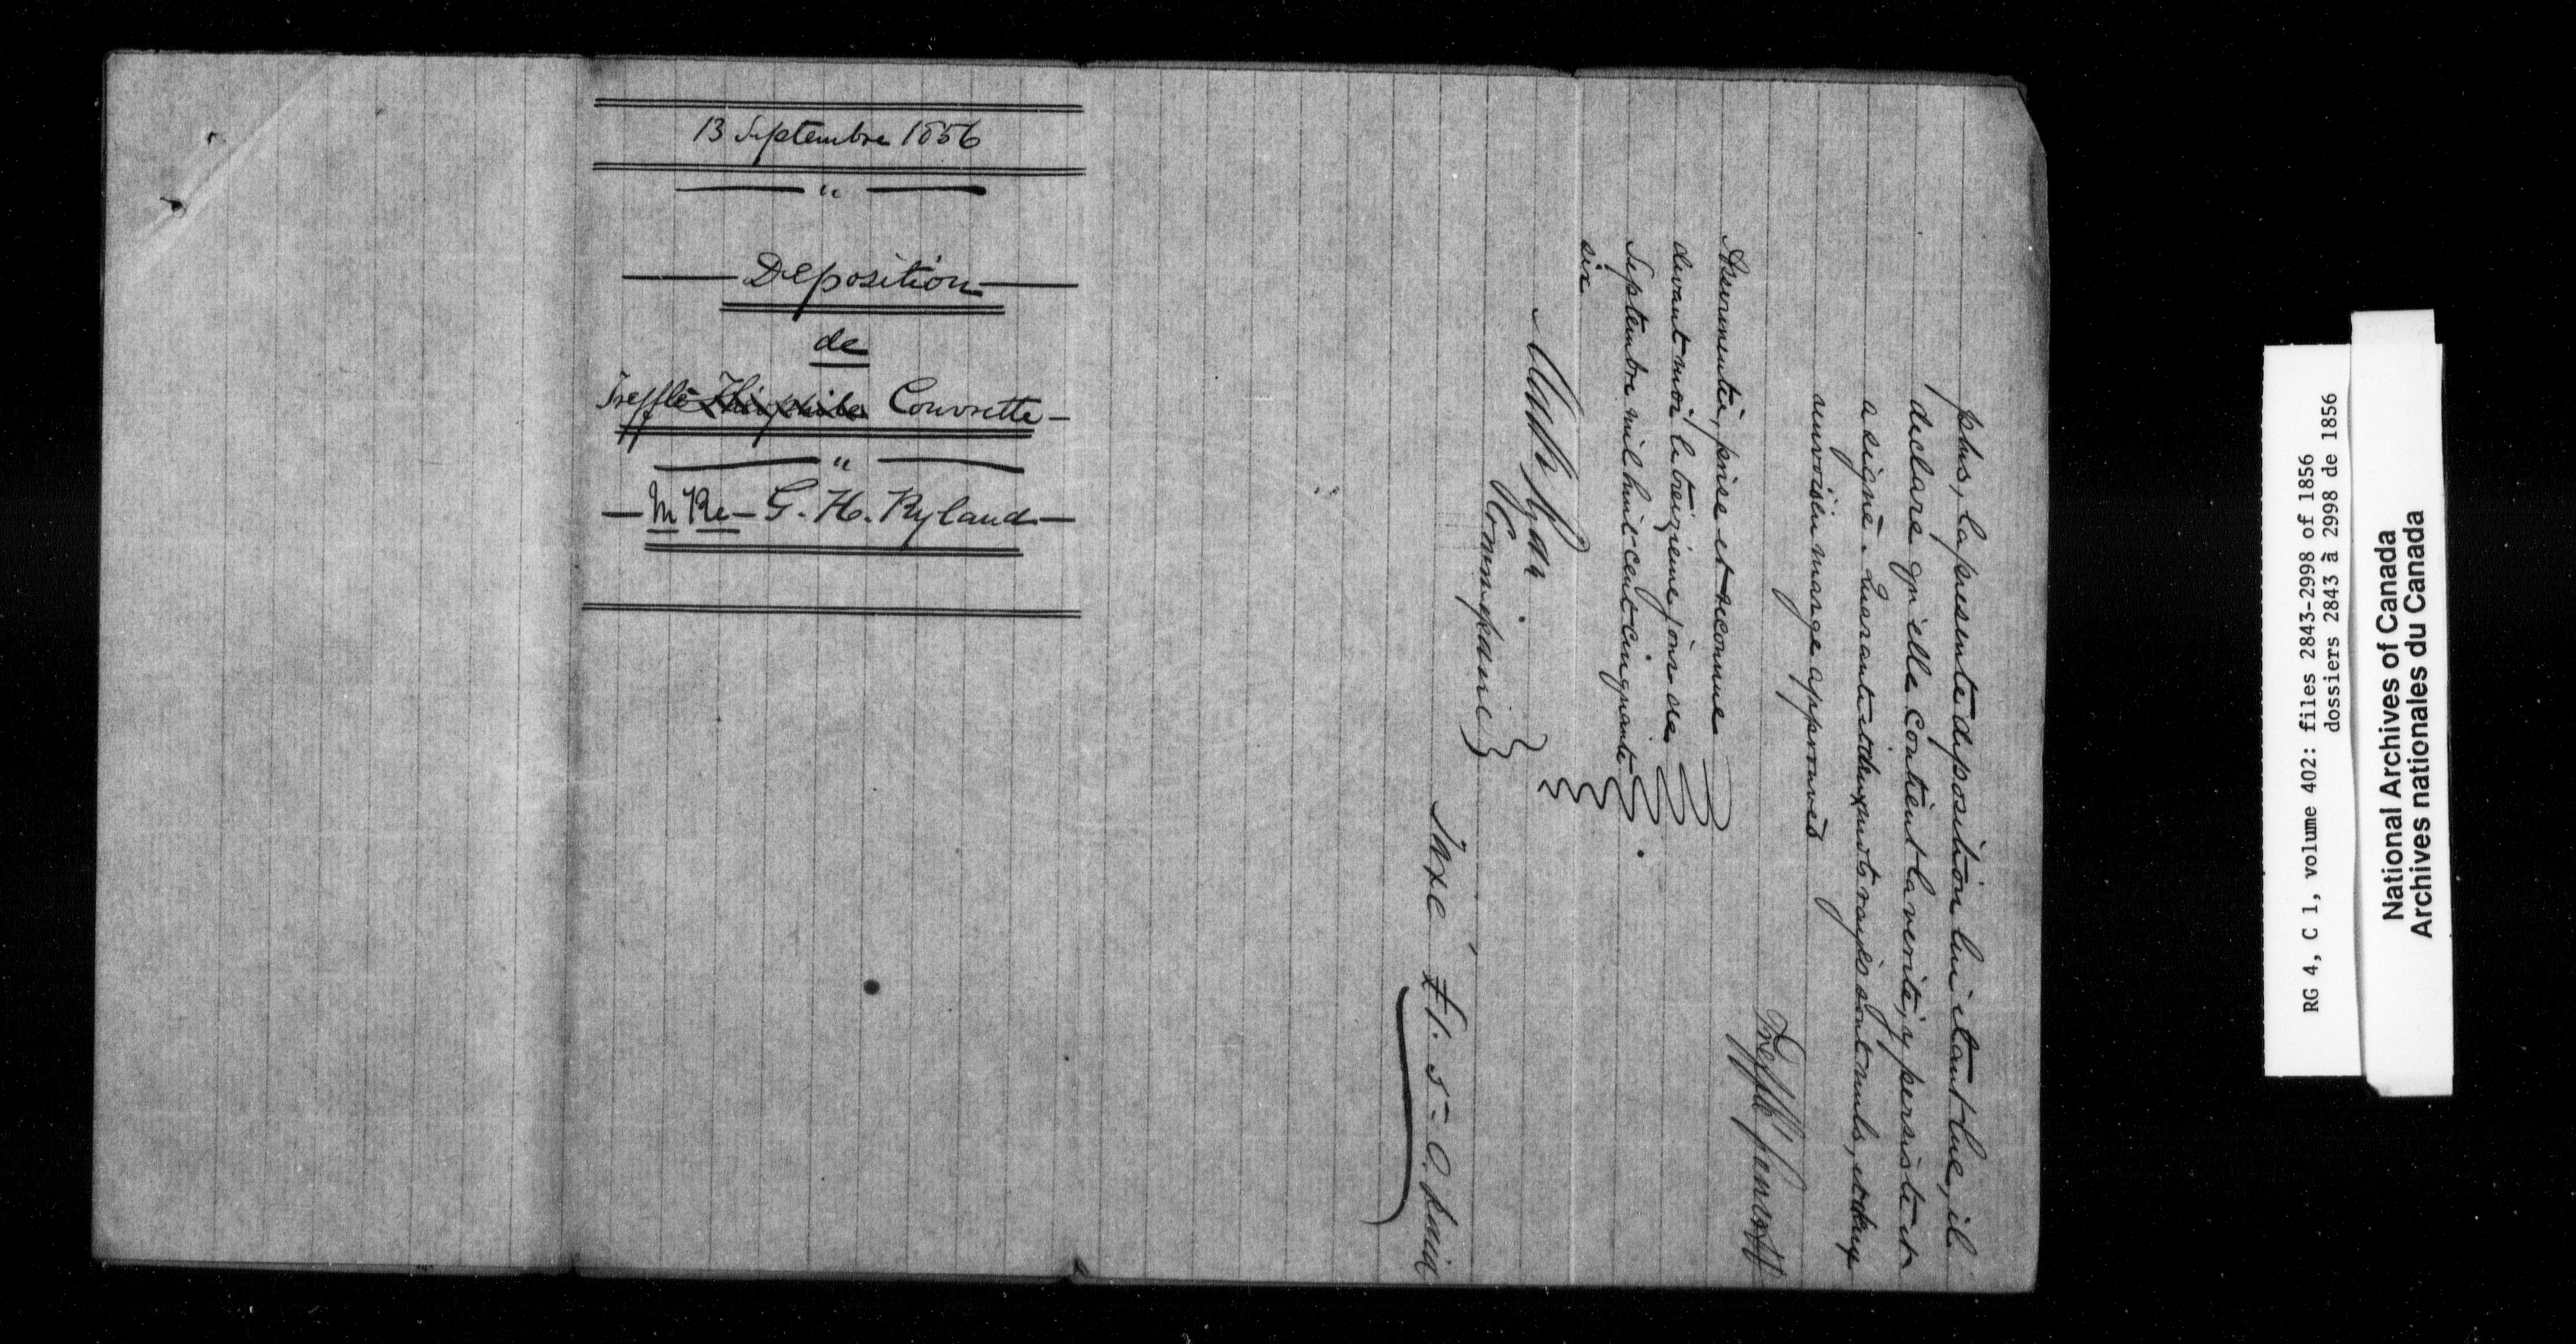 13 Septembre 1856
"
Deposition
de
Trefflé Théophile Couvrette
"
In Re - G. H. Ryland
plus, la presente deposition lui etant lue, il
declare qu'elle contient la verité, y persiste et
a signé. Quarante deux mots rayés sont nuls, et deux
renvois en marge approuvés
Trefflé
Assermentée, prise et reconnue
devant moi le treizieme jour de
Septembre mil huit cent cinquante
six
Commissaire
Taxé £1. 5 - 0. paid
RG 4, C 1, volume 402: files 2843-2998 of 1856
dossiers 2843 à 2998 de 1856
National Archives of Canada
Archives nationales du Canada